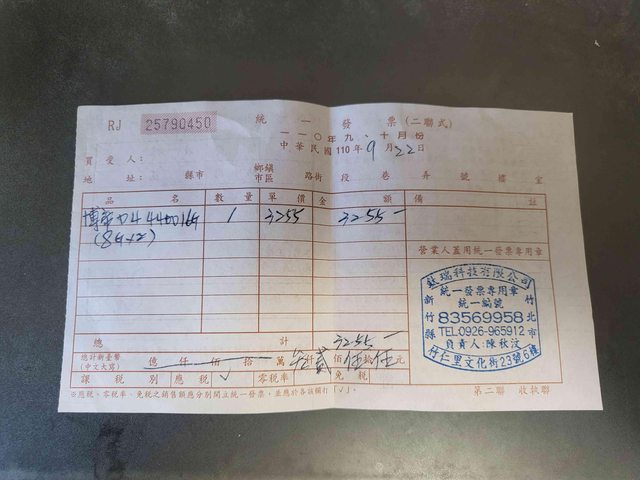 RJ 25790450 統一發票(二聯式)
一一○年九、十月份
中華民國110年9月22日
買受人：
地址： 縣市 鄉鎮市區 路街 段 巷 弄 號 樓 室
品名 數量 單價 金額 備註
D4 4400 16G 1 3255 3255
(8G×2)
營業人蓋用統一發票專用章
鈦瑞科技有限公司
統一發票專用章
新竹縣 統一編號 竹北市
83569958
TEL:0926-965912
負責人:陳秋汶
仁里文化街23號6樓
總計 3255
總計新臺幣
(中文大寫) 億 仟 佰 拾 萬 仟貳佰伍拾伍元
課稅別 應稅 √ 零稅率 免稅
※應稅、零稅率、免稅之銷售額應分別開立統一發票，並應於各該欄打「√」。
第二聯 收執聯